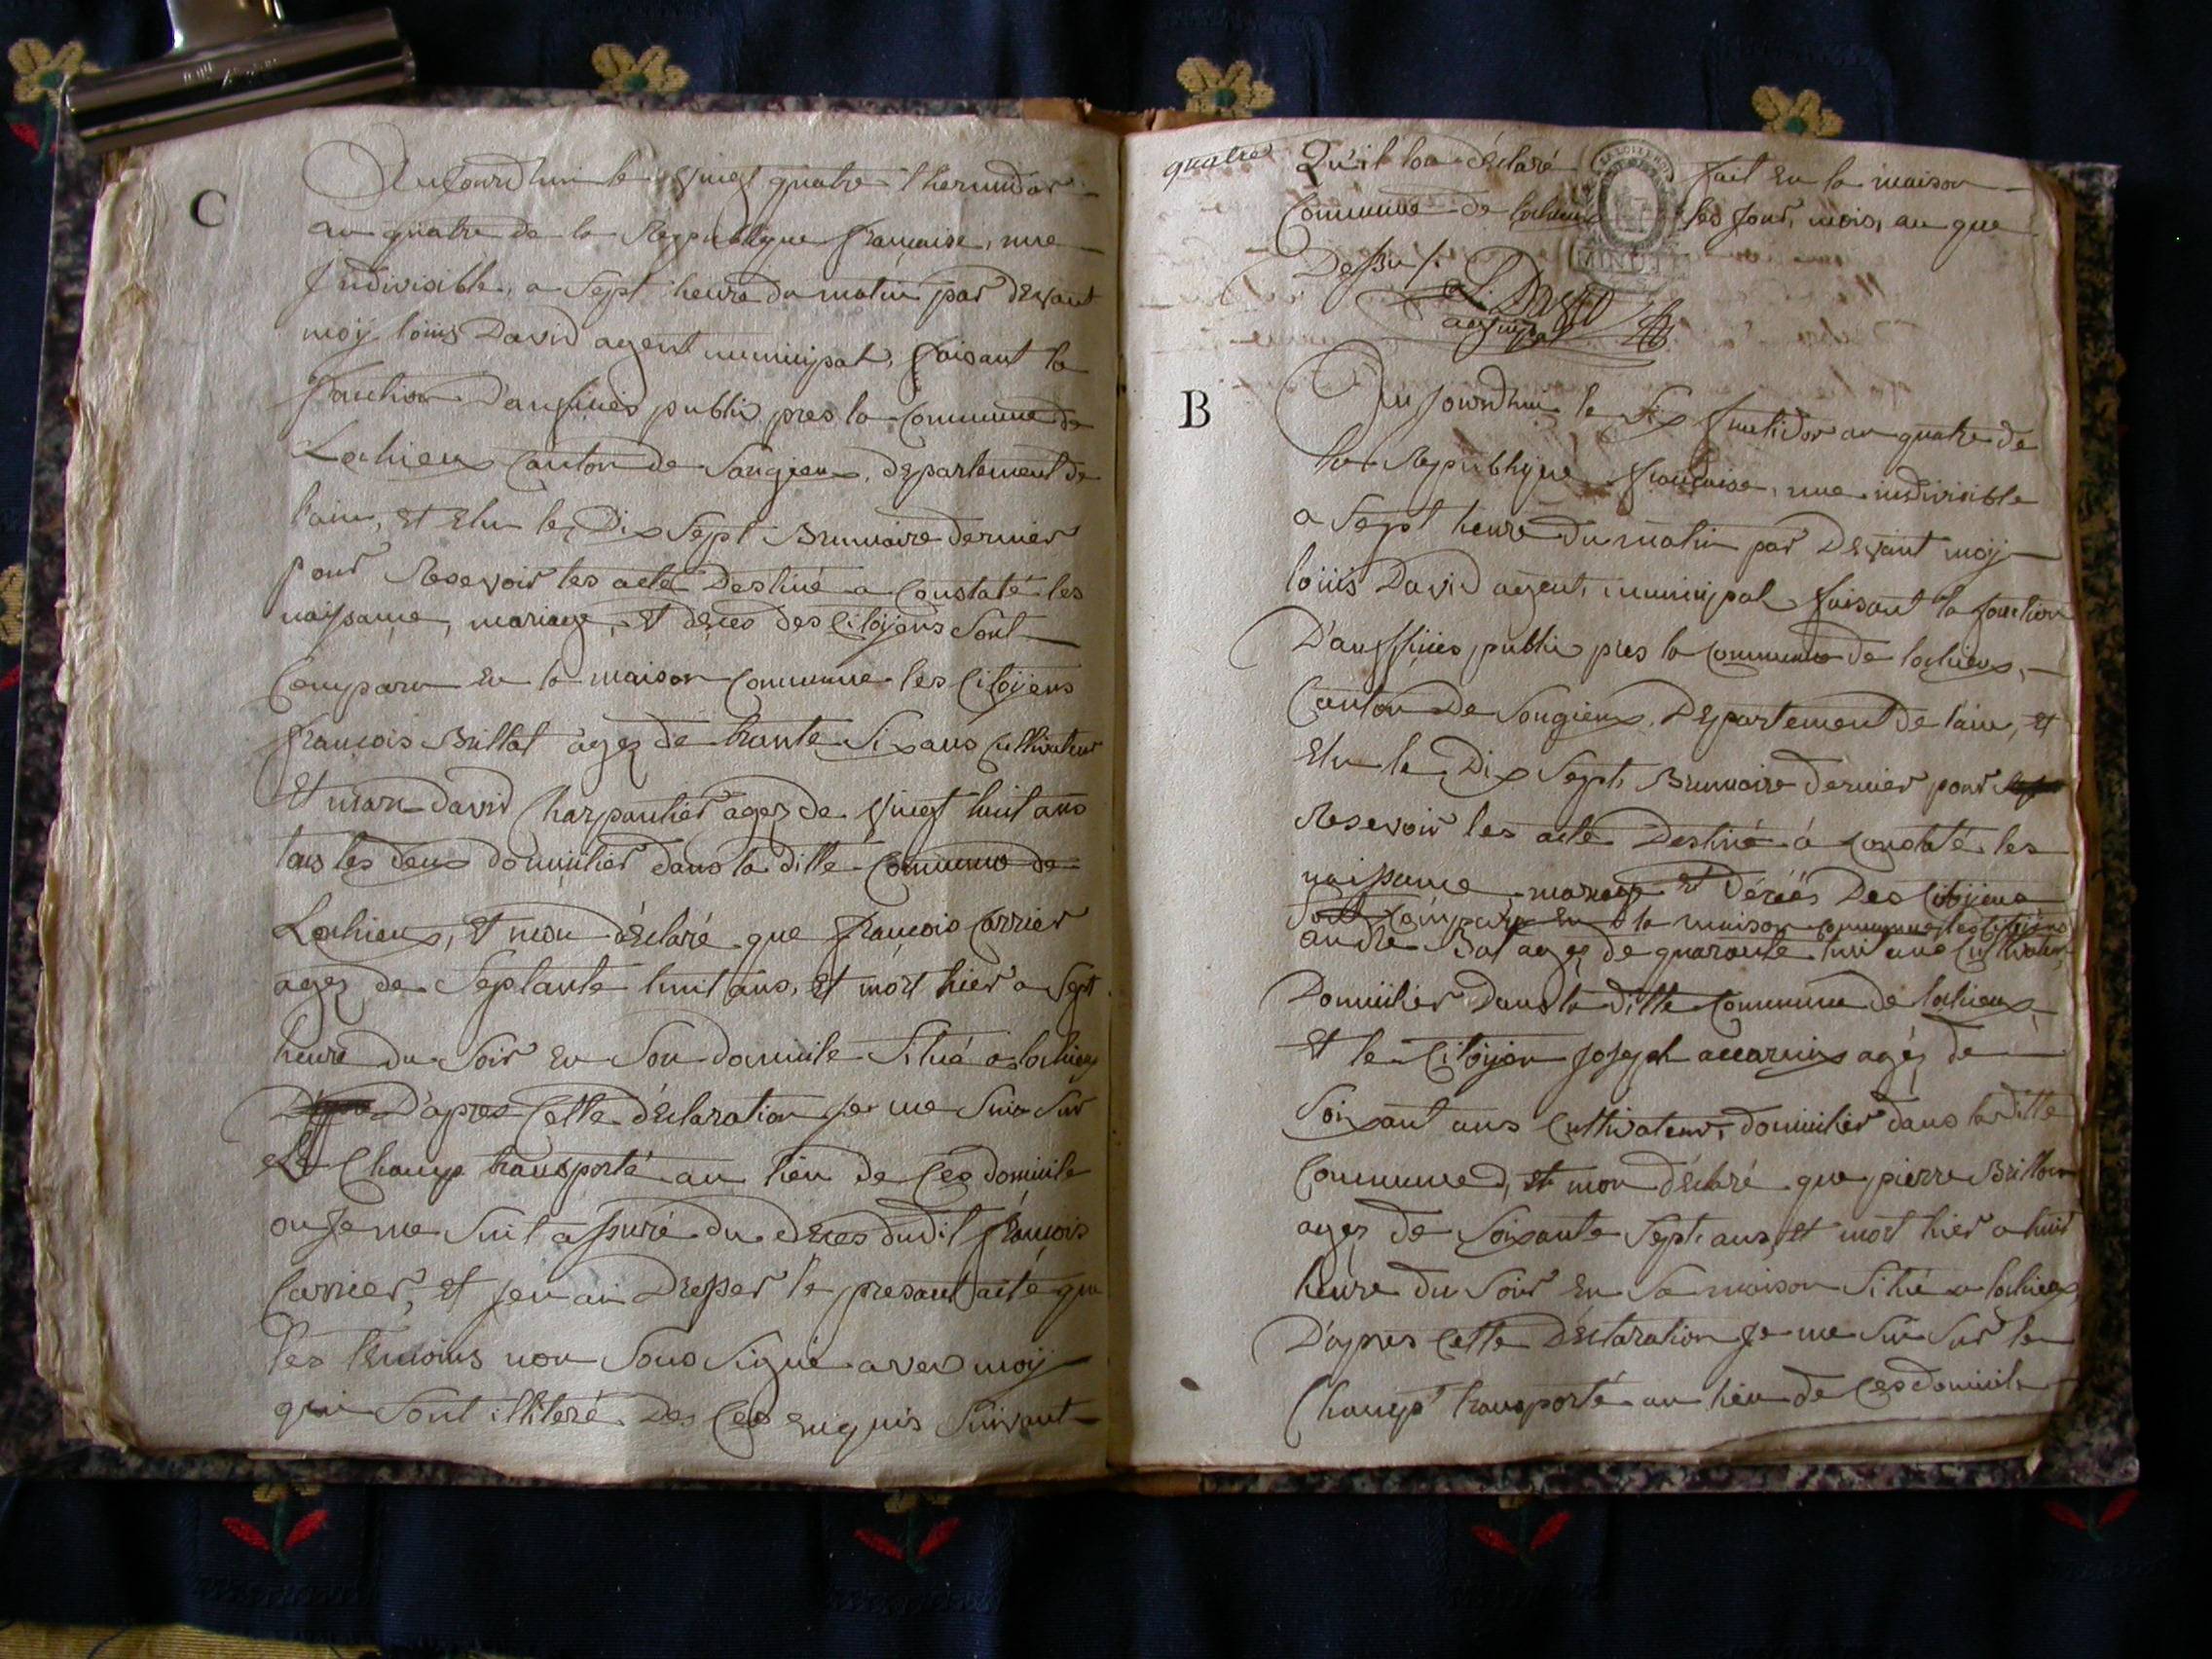 C
Aujourdhui le vingt quatre thermidor
an quatre de la Republique francaise, une
Jndivisible, a Sept heure du matin par devant
moÿ loüis David agent municipal, faisant la
fonction D'auficiés public pres la Commune de
Lochieux Canton de Songieux, departement de
l'ain, et Elu le Dix Sept Brumaire dernier
pour Resevoir les acte Destiné a Constaté les
naissance, mariage, et decés des Citoÿens Sont
Comparu En la maison Commune les Citoÿens
francois Brillat agez de trante Six ans Cultivateur
Et marc david Charpantier agez de vingt huit ans
tous les deux domicilier dans la ditte Commune de
Lochieux, et mon déclaré que francois Carrier
agez de Septante huit ans, et mort hier a Sept
heure du Soir En Son domicile Situé a lochieux
D'apres Cette déclaration Je me Suis Sur
Le Champ transporté au lieu de Ces domicile
ou Je me Suit assuré du deces dudit francois
Carrier, et Jen ai Dresser le presant acte que
les temoins non Sous Signié avec moÿ
qui Sont illiteré Des Ces enquis Suivant
quatre
Qu'il lon déclaré fait En la maison
Commune de lochieux les Jour, mois, an que
Dessu /.
L. David
ag. mipal
B
Aujourdhui le Six fructidor an quatre de
la Republique francaise, une indivisible
a Sept heure du matin par Devant moÿ
loüis David agent, municipal faisant la fonction
D'aufficiés public pres la Commune de lochieux,
Canton de Songieux, Departement de lain, et
Elu le Dix Sept Brumaire dernier pour
Resevoir les acte Destiné á Constaté les
naissance mariage et Décés Des Citoÿens
Sont Comparu En la maison Commune les Citoÿens
andre Bal agez de quarante huit ans Cultivateur
Domicilier Dans la ditte Commune de lochieux
Et le Citoÿen Joseph accarier agéz de
Soixant ans Cultivateur, domicilier dans la ditte
Commune, et mon déclaré que pierre Brillat
agez de Soixante Sept ans, et mort hier a huit
heure du Soir En Sa maison Situé a lochieux
D'apres Cette Déclaration Je me Suis Sur le
Champ transporté au lieu de Ces domicile